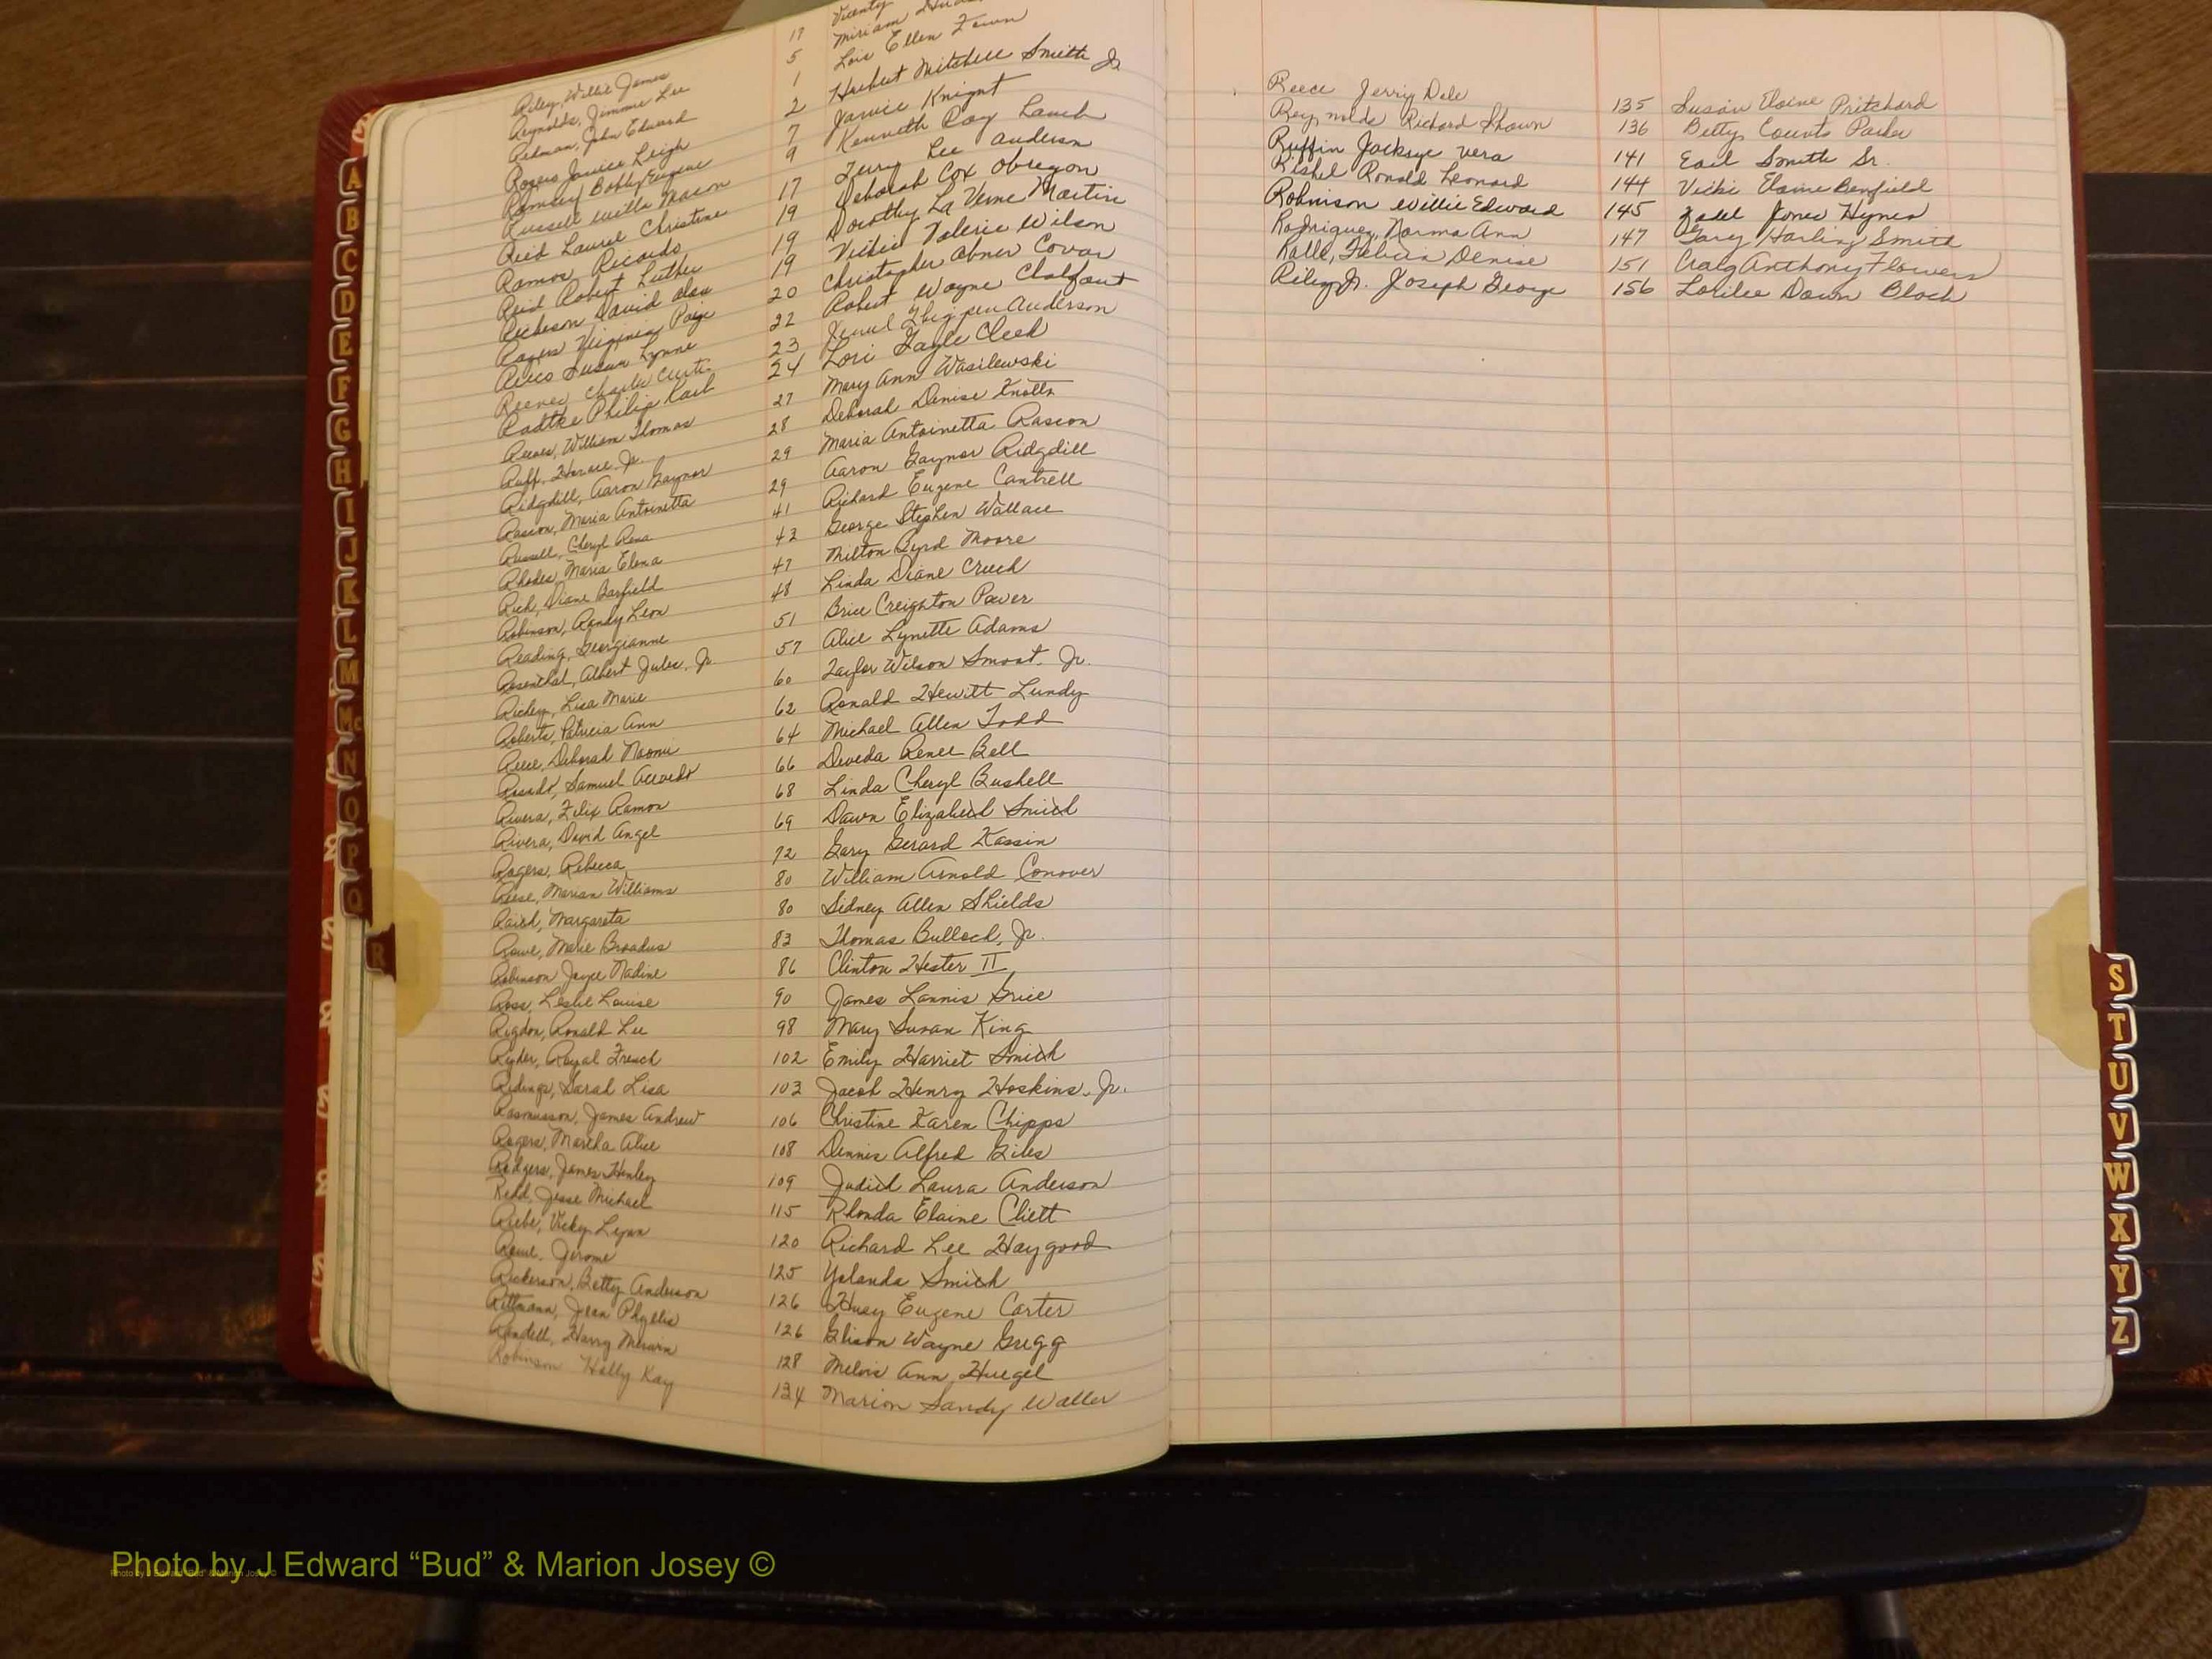 Riley, Willie James
Reynolds, Jimmie Lee
Redman, John Edward
Rogers Janice Leigh
Ramsey Bobby Eugene
Russell Willa Marion
Reid Laurie Christine
Ramos, Ricardo
Reid Robert Luther
Rickeson David Alan
Rogers Virginia Paige
Susan Lynne
Reeves Charlie Curtis
Radtke Philip Karl
Reeves, William Thomas
Ruff, Horace, Jr.
Ridgdill, Aaron Gaynor
Rascon, Maria Antoinetta
Russell, Cheryl Rena
Rhodes, Maria Elena
Rich, Diane Barfield
Robinson, Randy Leon
Reading, Georgianne
Rosenthal, Albert Jules, Jr.
Richey, Lisa Marie
Roberts, Patricia Ann
Reese, Deborah Naomi
Samuel
Rivera, Felix Ramon
Rivera, David Angel
Rogers, Rebecca
Reese, Marian Williams
Margareta
Rowe, Marie Broadus
Robinson Joyce Nadine
Ross, Leslie Louise
Rigdon, Ronald Lee
Ryder, Royal French
Ridings, Sarah Lisa
Rasmusson, James Andrew
Rogers, Martha Alice
Rodgers, James Henley
Redd, Jesse Michael
Riebe, Vicky Lynn
Jerome
Rickerson, Betty Anderson
Rittmann, Jean Phyllis
Randell, Harry
Robinson Holly Kay
17 Miriam
5 Lois Ellen
1 Herbert Mitchell Smith Jr
2 Janice Knight
7 Kenneth Coy
9 Terry Lee Anderson
17 Deborah Cox Obregon
19 Dorothy La Verne Martin
19 Vickie Valerie Wilson
19 Christopher Abner Covar
20 Robert Wayne Chalfant
22 Thigpen Anderson
23 Lori Gayle Cleek
24 Mary Ann Wasilewski
27 Deborah Denise Knotts
28 Maria Antoinetta Rascon
29 Aaron Gaynor Ridgdill
29 Richard Eugene Cantrell
41 George Stephen Wallace
43 Milton Byrd Moore
47 Linda Diane Creech
48 Brice Creighton Power
51 Alice Lynette Adams
57 Taylor Wilson Smoat, Jr.
60 Ronald Hewitt Lundy
62 Michael Allen Todd
64 Deveda Renee Bell
66 Linda Cheryl Bushell
68 Dawn Elizabeth Smith
69 Gary Gerard Kassin
72 William Arnold Conover
80 Sidney Allen Shields
80 Thomas Bulloch, Jr.
83 Clinton Hester II
86 James Lannis Grice
90 Mary Susan King
98 Emily Harriet Smith
102 Jacob Henry Hoskins, Jr.
103 Christine Karen Chipps
106 Dennis Alfred Giles
108 Judith Laura Anderson
109 Rhonda Elaine Cliett
115 Richard Lee Haygood
120 Yolanda Smith
125 Eugene Carter
126 Glison Wayne Gregg
126 Melvis Ann Huegel
128
134 Marion Sandy Waller
Reece Jerry Dale 135 Susan Elaine Pritchard
Reynolds Richard Shawn 136 Betty Counts Parker
Ruffin Jacksye Vera 141 Earl Smith Sr.
Rishel Ronald Leonard 144 Vicki Elaine Benfield
Robinson Willie Edward 145 Jones Hynes
Rodriguez, Norma Ann 147 Gary Harling Smith
Felicia Denise 151 Craig Anthony Flowers
Riley Jr. Joseph George 156 Lorilee Dawn Bloch
A
B
C
D
E
F
G
H
I
J
K
L
M
Mc
N
O
P
Q
R
S
T
U
V
W
X
Y
Z
Photo by J Edward “Bud” & Marion Josey ©
Photo by J Edward “Bud” & Marion Josey ©